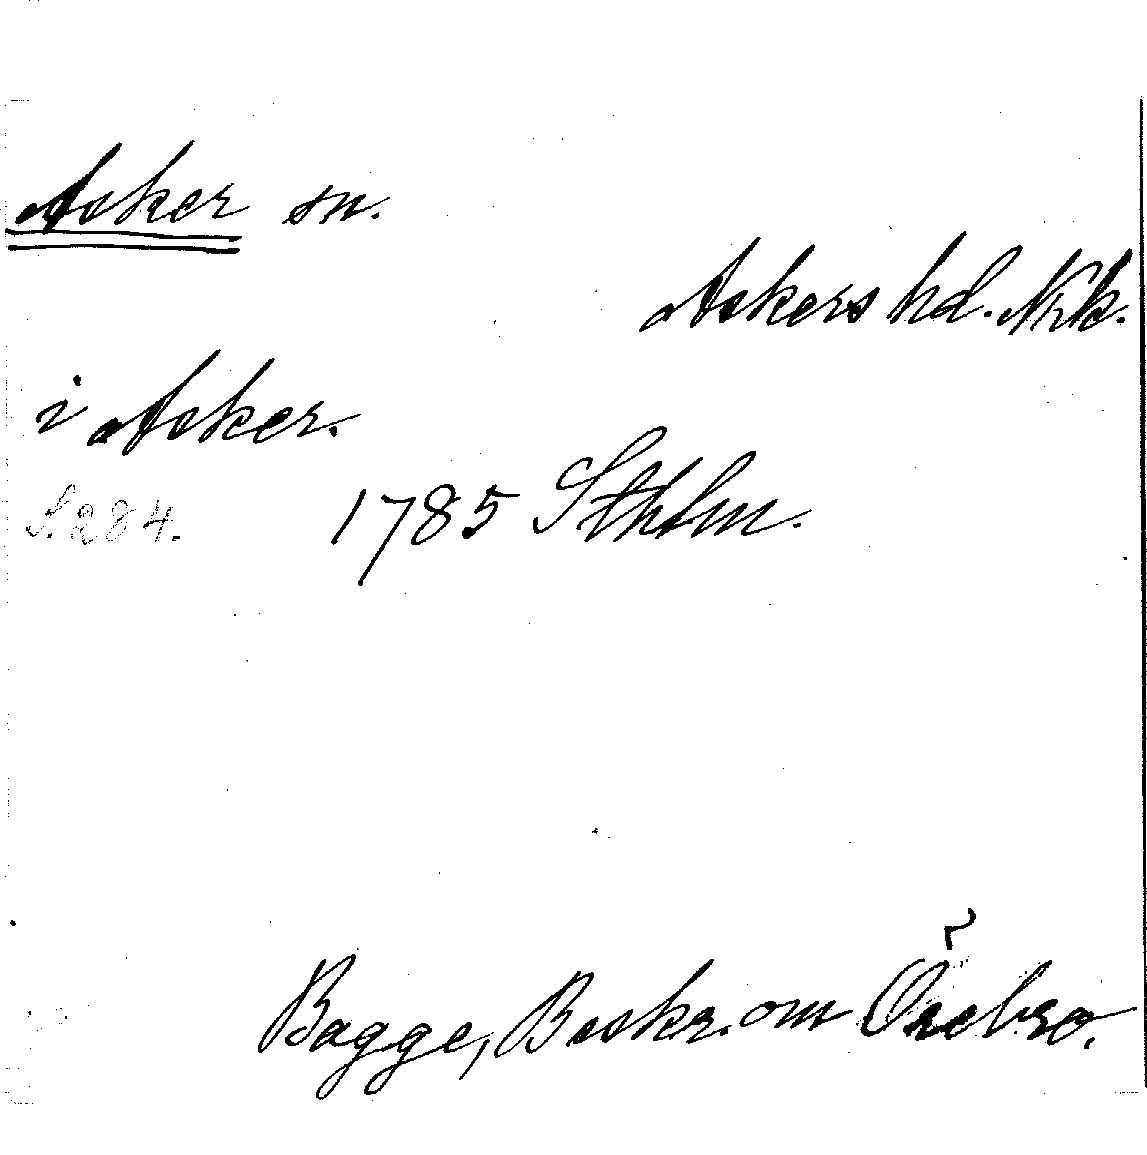 Asker sn.
Askers hd. Nrk.
i Asker.
S. 284. 1785 Sthlm.
Bagge, Beskr. om Örebro.